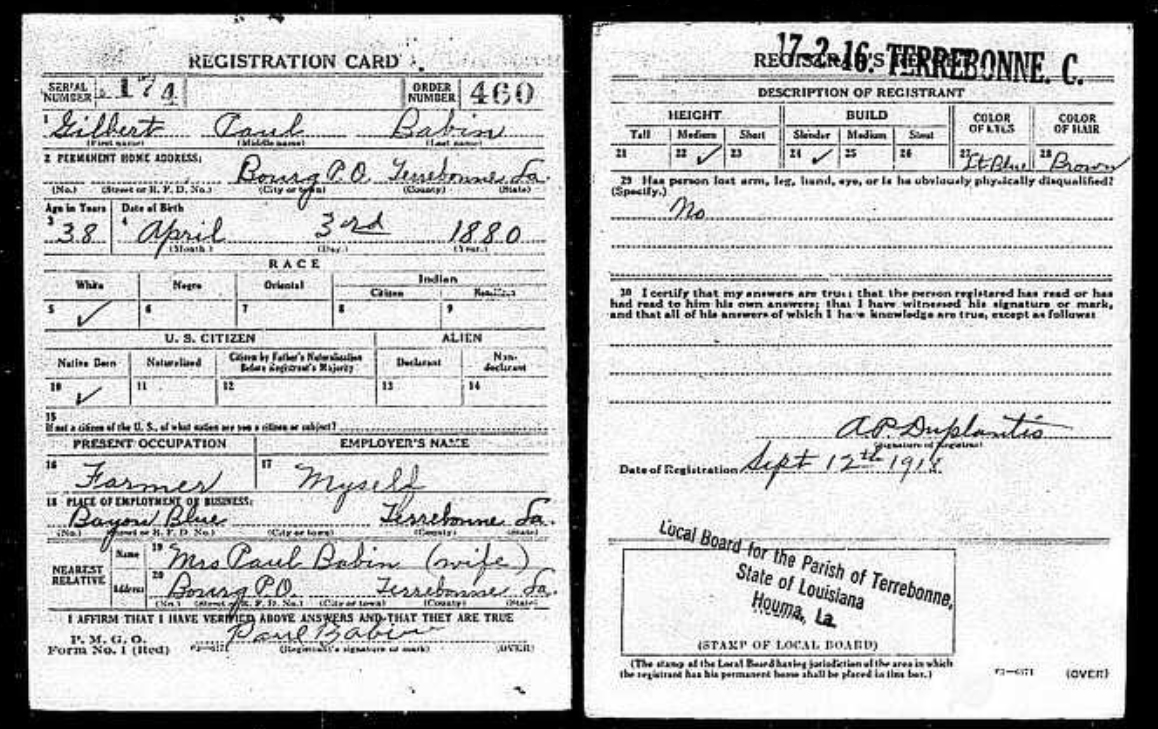 REGISTRATION CARD
SERIAL NUMBER 174
ORDER NUMBER 460
1 Gilbert Paul Babin
(First name) (Middle name) (Last name)
2 PERMANENT HOME ADDRESS:
Bourg P.O. Terrebonne La.
(No.) (Street or R. F. D. No.) (City or town) (County) (State)
Age in Years Date of Birth
3 38 4 April 3rd 1880
(Month.) (Day.) (Year.)
RACE
White Negro Oriental Indian
Citizen
5 ✓ 6 7 8 9
U. S. CITIZEN ALIEN
Native Born Naturalized Citizen by Father's Naturalization Before Registrant's Majority Declarant Non-declarant
10 ✓ 11 12 13 14
15
If not a citizen of the U. S., of what nation are you a citizen or subject?
PRESENT OCCUPATION EMPLOYER'S NAME
16 Farmer 17 Myself
18 PLACE OF EMPLOYMENT OR BUSINESS:
Bayou Blue Terrebonne La.
(No.) (Street or R. F. D. No.) (City or town) (County) (State)
NEAREST RELATIVE
Name 19 Mrs Paul Babin (wife)
Address 20 Bourg P.O. Terrebonne La.
(No.) (Street or R. F. D. No.) (City or town) (County) (State)
I AFFIRM THAT I HAVE VERIFIED ABOVE ANSWERS AND THAT THEY ARE TRUE
P. M. G. O.
Form No. 1 (Red) Paul Babin
(Registrant's signature or mark) (OVER)
17-2-16. TERREBONNE. C.
DESCRIPTION OF REGISTRANT
HEIGHT BUILD COLOR OF EYES COLOR OF HAIR
Tall Medium Short Slender Medium Stout
21 22 ✓ 23 24 ✓ 25 26 27 Lt Blue 28 Brown
29 Has person lost arm, leg, hand, eye, or is he obviously physically disqualified?
(Specify.)
No
30 I certify that my answers are true; that the person registered has read or has
had read to him his own answers; that I have witnessed his signature or mark,
and that all of his answers of which I have knowledge are true, except as follows:
A.P. Duplantis
(Signature of Registrar)
Date of Registration Sept 12th 1918
Local Board for the Parish of Terrebonne,
State of Louisiana
Houma, La.
(STAMP OF LOCAL BOARD)
(The stamp of the Local Board having jurisdiction of the area in which
the registrant has his permanent home shall be placed in this box.)
(OVER)